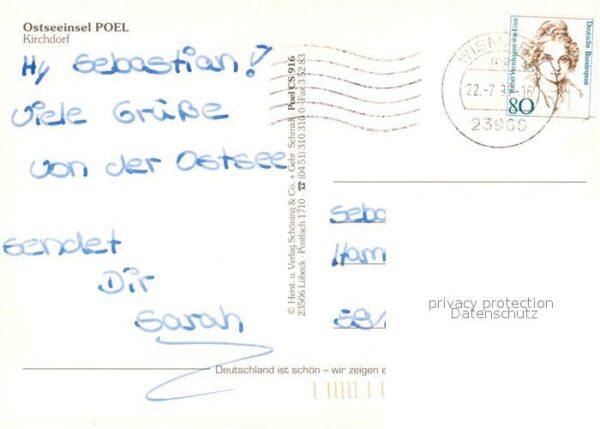 Ostseeinsel POEL
Kirchdorf
Hy Sebastian!
viele Grüße
von der Ostsee
sendet
Dir
Sarah
© Herst. u. Verlag Schöning & Co. + Gebr. Schmidt · Poel CS 916
23506 Lübeck · Postfach 1710 · ☎ (04 51) 310 310 0 · Fax 3 52 83
22.-7.9
Deutsche Bundespost
Rahel Varnhagen von Ense
80
privacy protection
Datenschutz
Deutschland ist schön – wir zeigen e